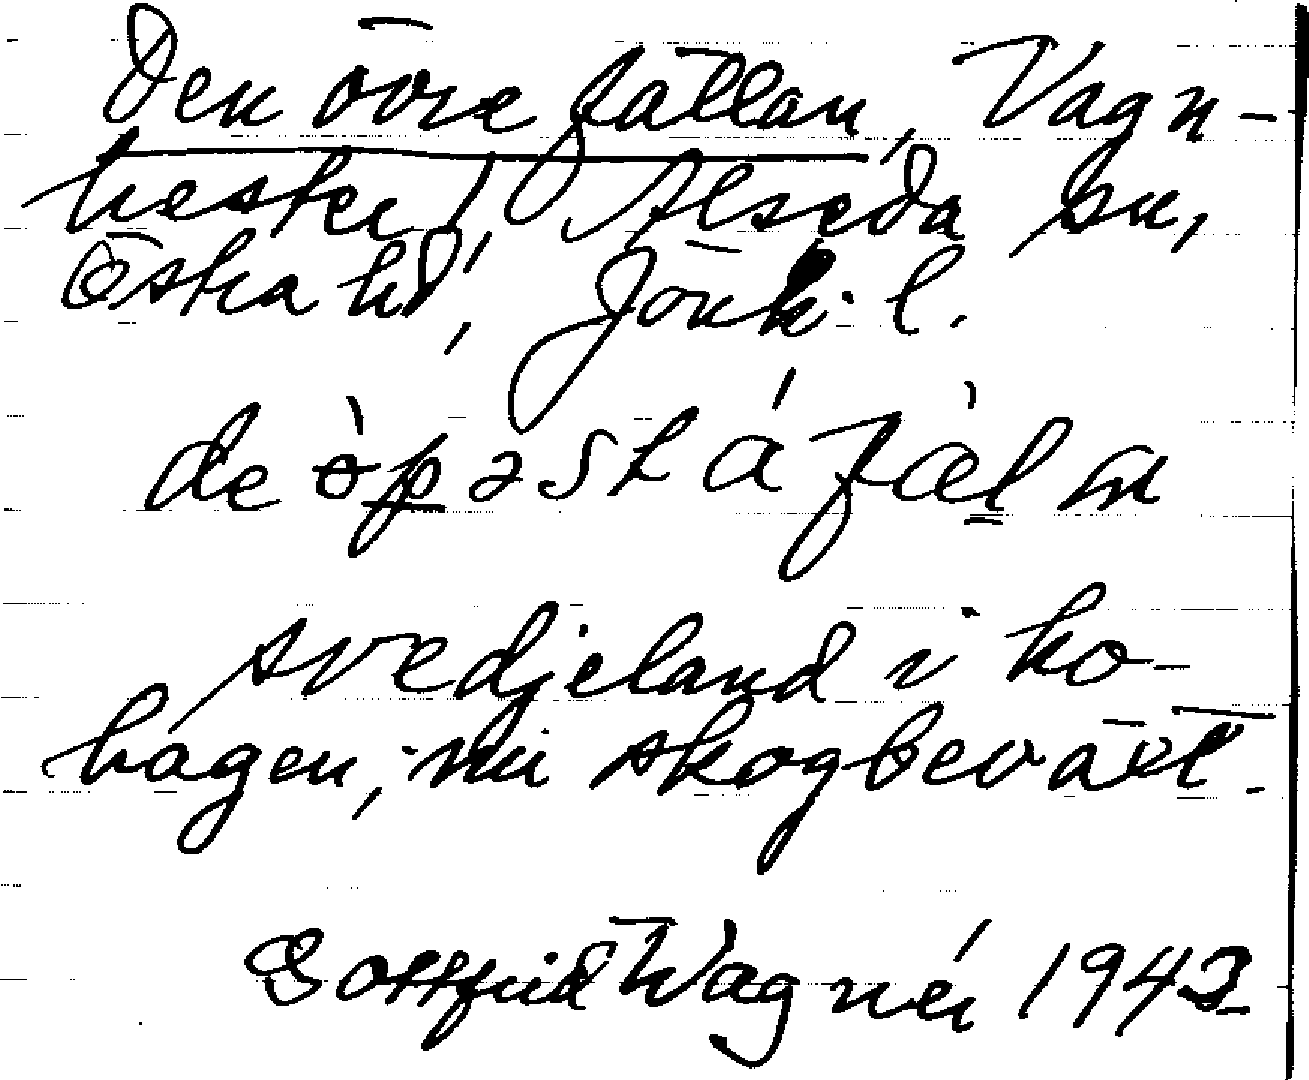 Den övre fällan, Vagn-
hester, Alseda sn,
Östra hd, Jönk. l.
de òpəst á fæl m
svedjeland i ko-
hagen, nu skogbeväxt.
Gottfrid Wagnér 1943